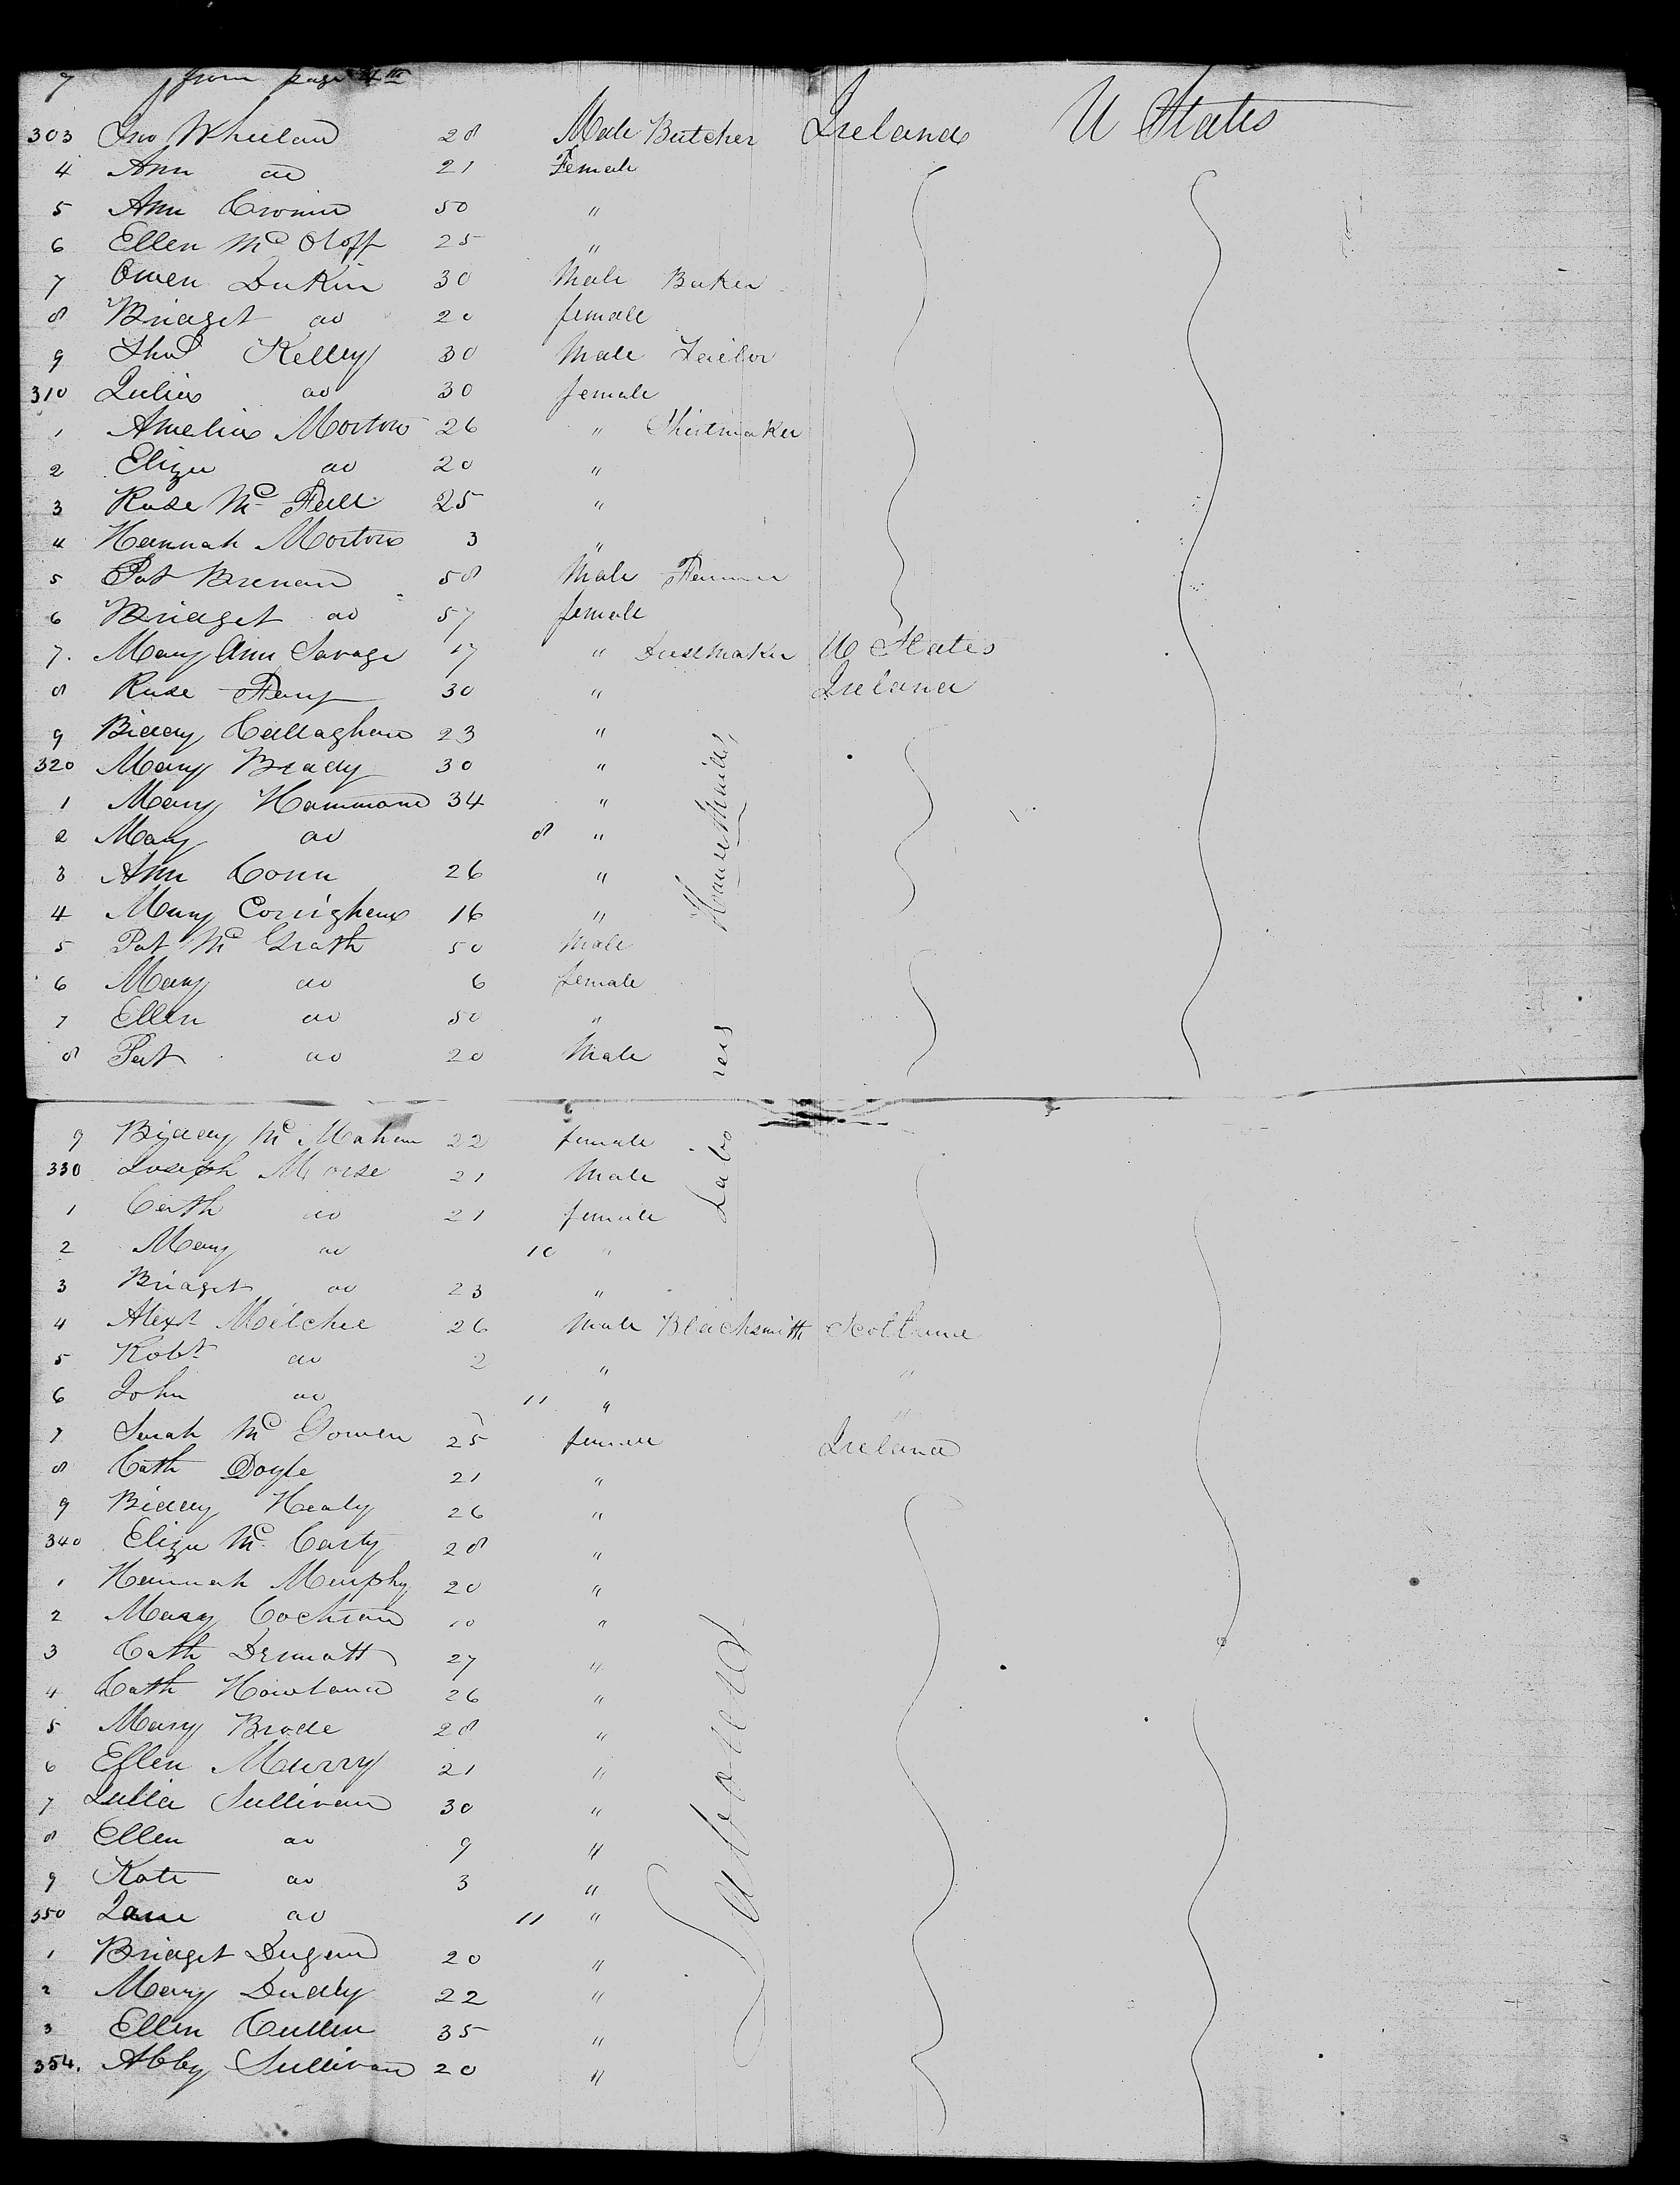 from page 4th
303 Jno Whelan 28 Male Butcher Ireland U States
4 Ann do 21 Female
5 Ann Cronin 50 "
6 Ellen Mc 25 "
7 Owen Durkin 30 Male Baker
8 Bridget do 20 female
9 Thos Kelley 30 Male Tailor
310 Julia do 30 female
1 Amelia Morton 26 " Shirtmaker
2 Eliza do 20 "
3 Rose Mc Fall 25 "
4 Hannah Morton 3 "
5 Pat Brenan 58 Male Farmer
6 Bridget do 57 female
7. Mary Ann Savage 17 " Dressmaker U States
8 Rose 30 " Ireland
9 Biddy Callaghan 23 "
320 Mary Brady 30 "
1 Mary Hammond 34 "
2 Mary do 8 "
3 Ann Conn 26 "
4 Mary 16 "
5 Pat Mc Grath 50 Male
6 Mary do 6 female
7 Ellen do 50 "
8 Pat do 20 Male
9 Biddy Mc Mahon 22 female
330 Joseph Morse 21 Male
1 Cath do 21 female
2 Mary do 10 "
3 Bridget do 23 "
4 Alexr 26 Male Blacksmith Scotland
5 Robt do 2 " "
6 John do 11 " "
7 Sarah Mc Gowen 25 female Ireland
8 Cath Doyle 21 "
9 Biddy Healy 26 "
340 Eliza Mc Carty 28 "
1 Hannah Murphy 20 "
2 Mary Cochran 10 "
3 Cath Dermott 27 "
4 Cath Howland 26 "
5 Mary Brode 28 "
6 Ellen Murry 21 "
7 Julia Sullivan 30 "
8 Ellen do 9 "
9 Kate do 3 "
350 Jane do 11 "
1 Bridget Dugan 20 "
2 Mary Duddy 22 "
3 Ellen Cullen 35 "
354. Abby Sullivan 20 "
Labourers
Labourers